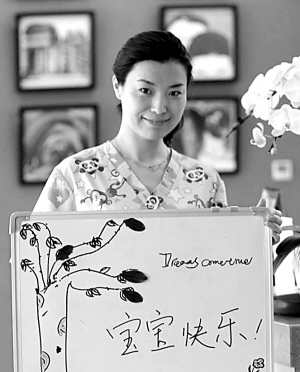 Dreams come true
宝宝快乐!